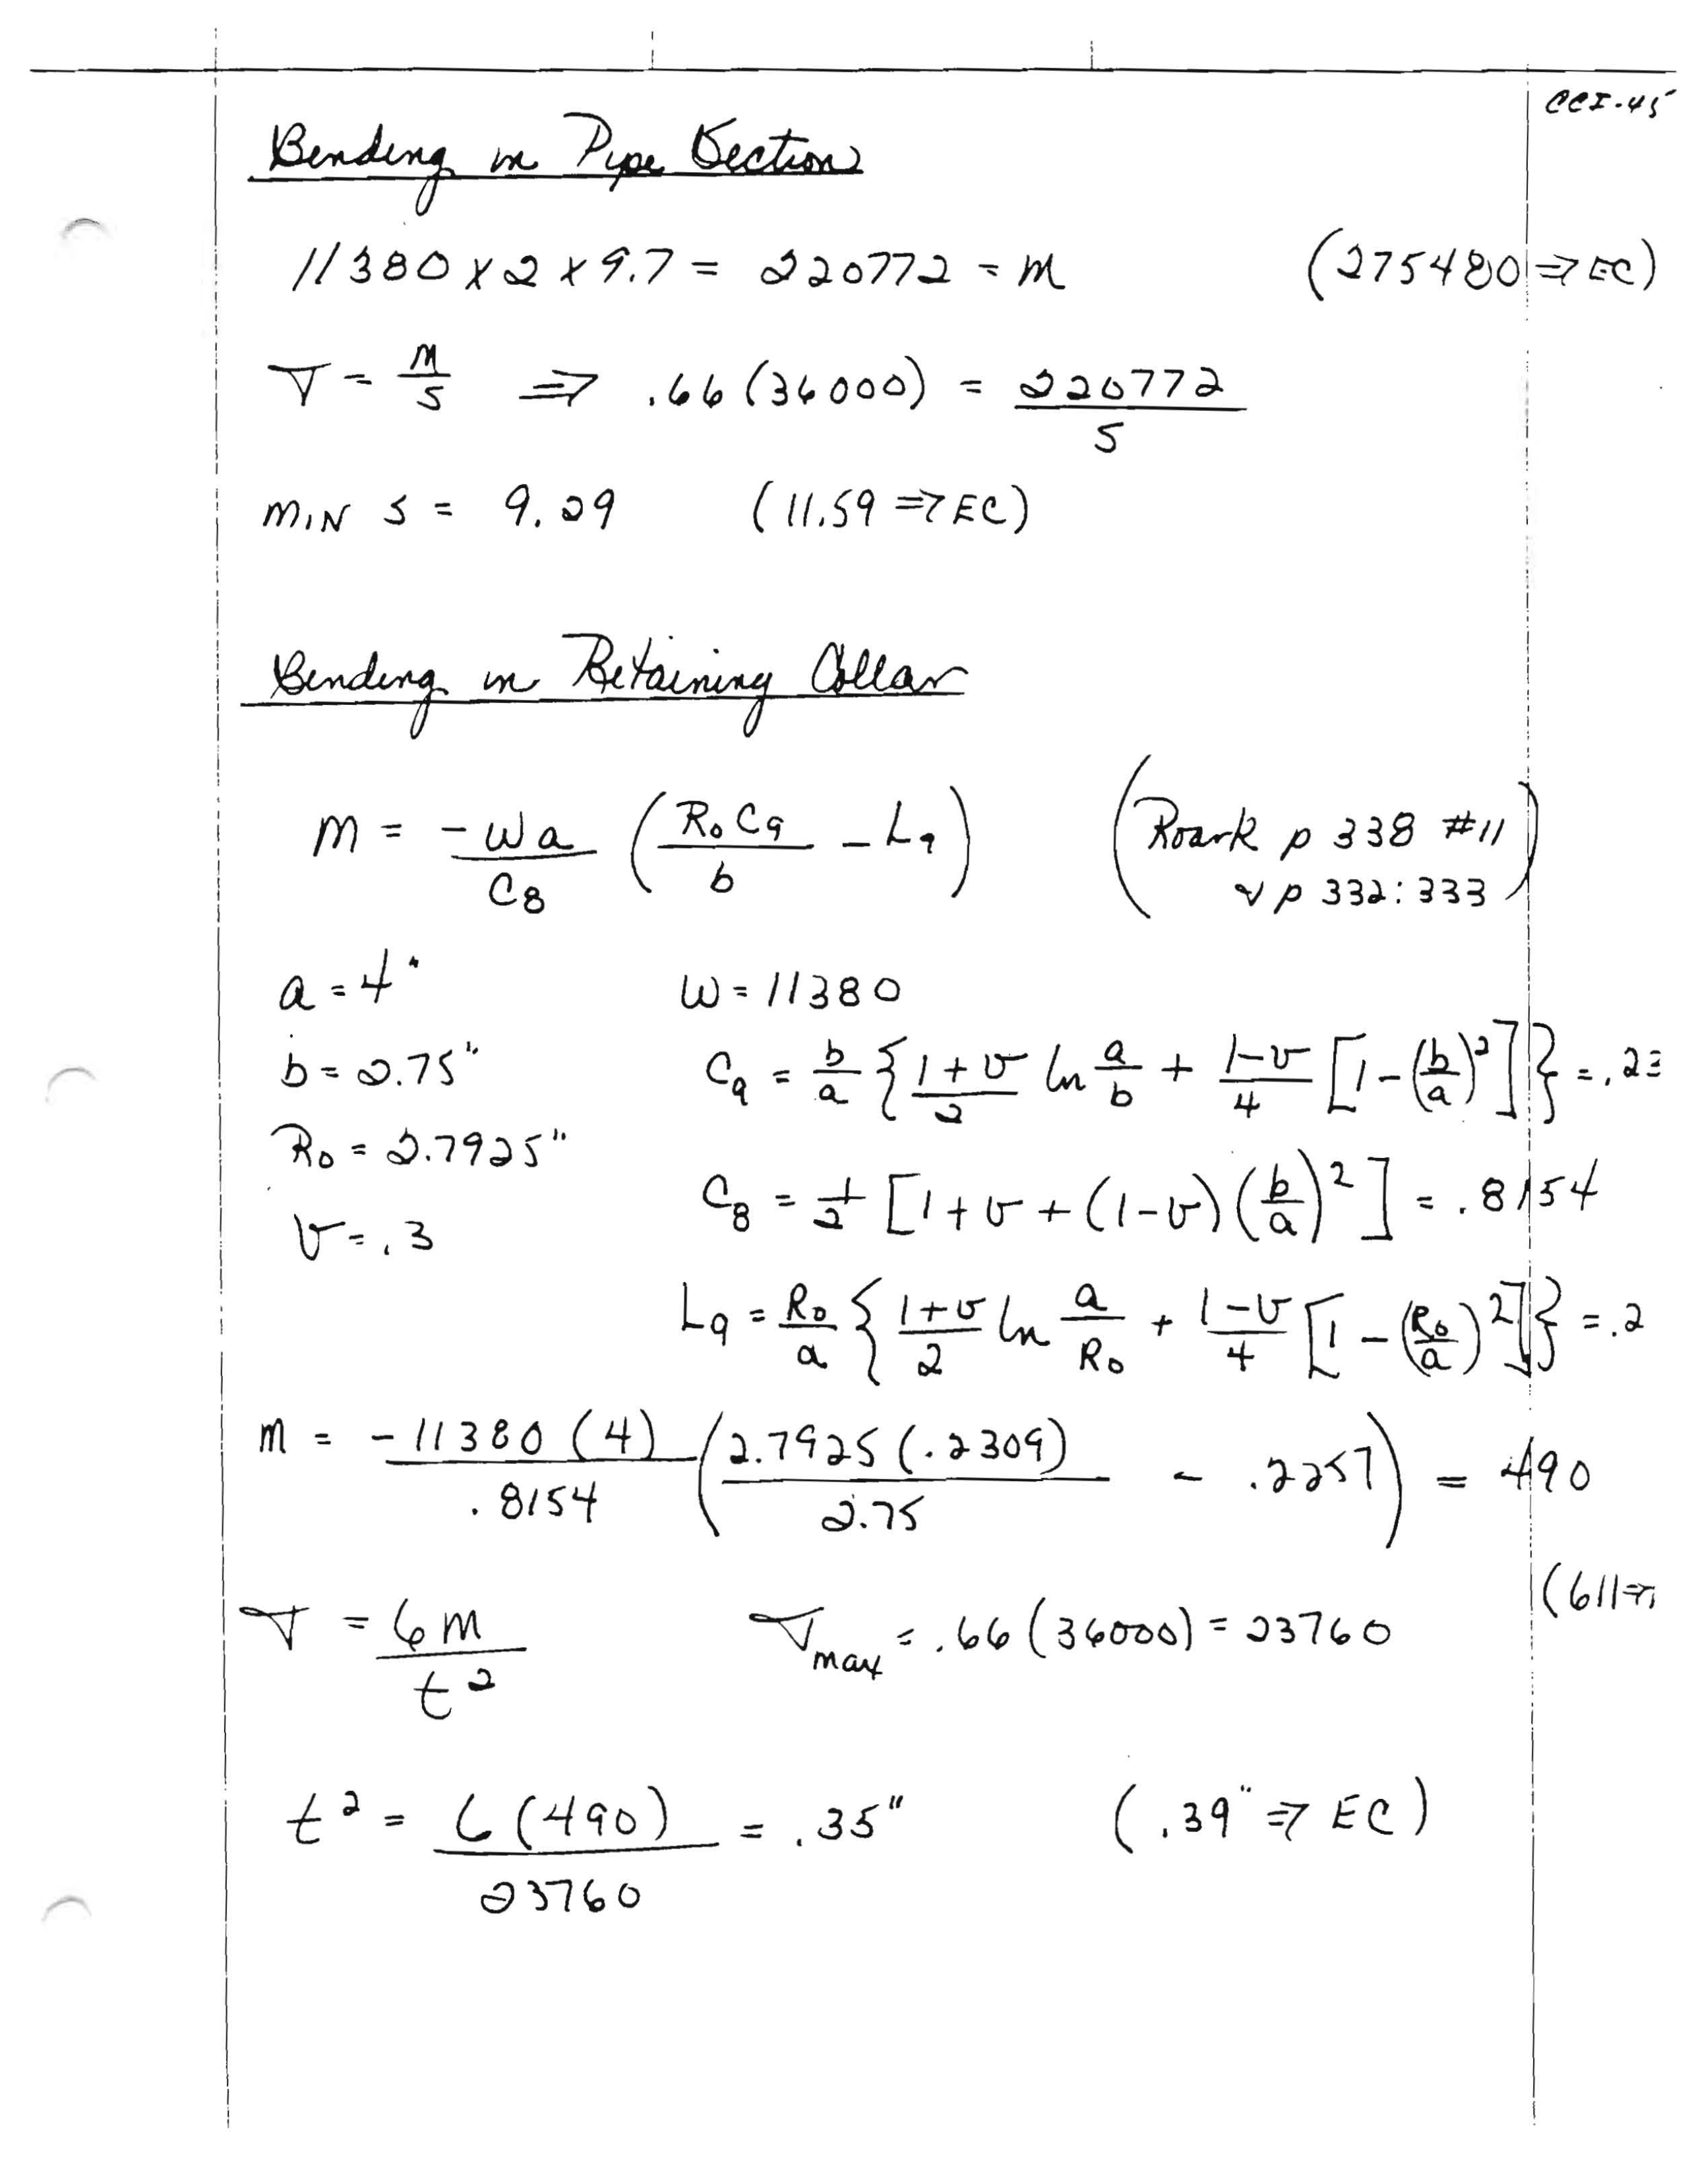 CCI-45
Bending in Pipe Section
11380 x 2 x 9.7 = 220772 = M (275480 => EC)
σ = M/S => .66 (36000) = 220772/S
MIN S = 9.29 (11.59 => EC)
Bending in Retaining Collar
M = -Wa/C8 (RoC9/b - L9) (Roark p 338 #11
& p 332:333)
a = 4" W = 11380
b = 2.75" C9 = b/a {1+ν/2 ln a/b + 1-ν/4 [1-(b/a)²]} = .23
Ro = 2.7925"
ν = .3 C8 = 1/2 [1+ν+(1-ν)(b/a)²] = .8154
L9 = Ro/a {1+ν/2 ln a/Ro + 1-ν/4 [1-(Ro/a)²]} = .2
M = -11380 (4)/.8154 (2.7925 (.2309)/2.75 - .2257) = 490
(611 =>
σ = 6M/t² σmax = .66 (36000) = 23760
t² = 6 (490)/23760 = .35" (.39" => EC)